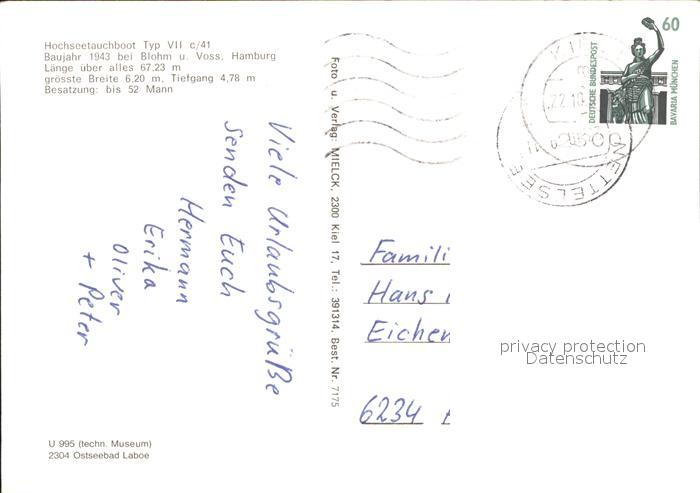 Hochseetauchboot Typ VII c/41
Baujahr 1943 bei Blohm u. Voss, Hamburg
Länge über alles 67,23 m
grösste Breite 6,20 m, Tiefgang 4,78 m
Besatzung: bis 52 Mann
Viele Urlaubsgrüße
senden Euch
Hermann
Erika
Oliver
+ Peter
U 995 (techn. Museum)
2304 Ostseebad Laboe
Foto u. Verlag: MIELCK, 2300 Kiel 17, Tel.: 391314, Best. Nr. 7175
60
DEUTSCHE BUNDESPOST
BAVARIA MÜNCHEN
METTELSEE
Famili
Hans
Eichen
6234
privacy protection
Datenschutz